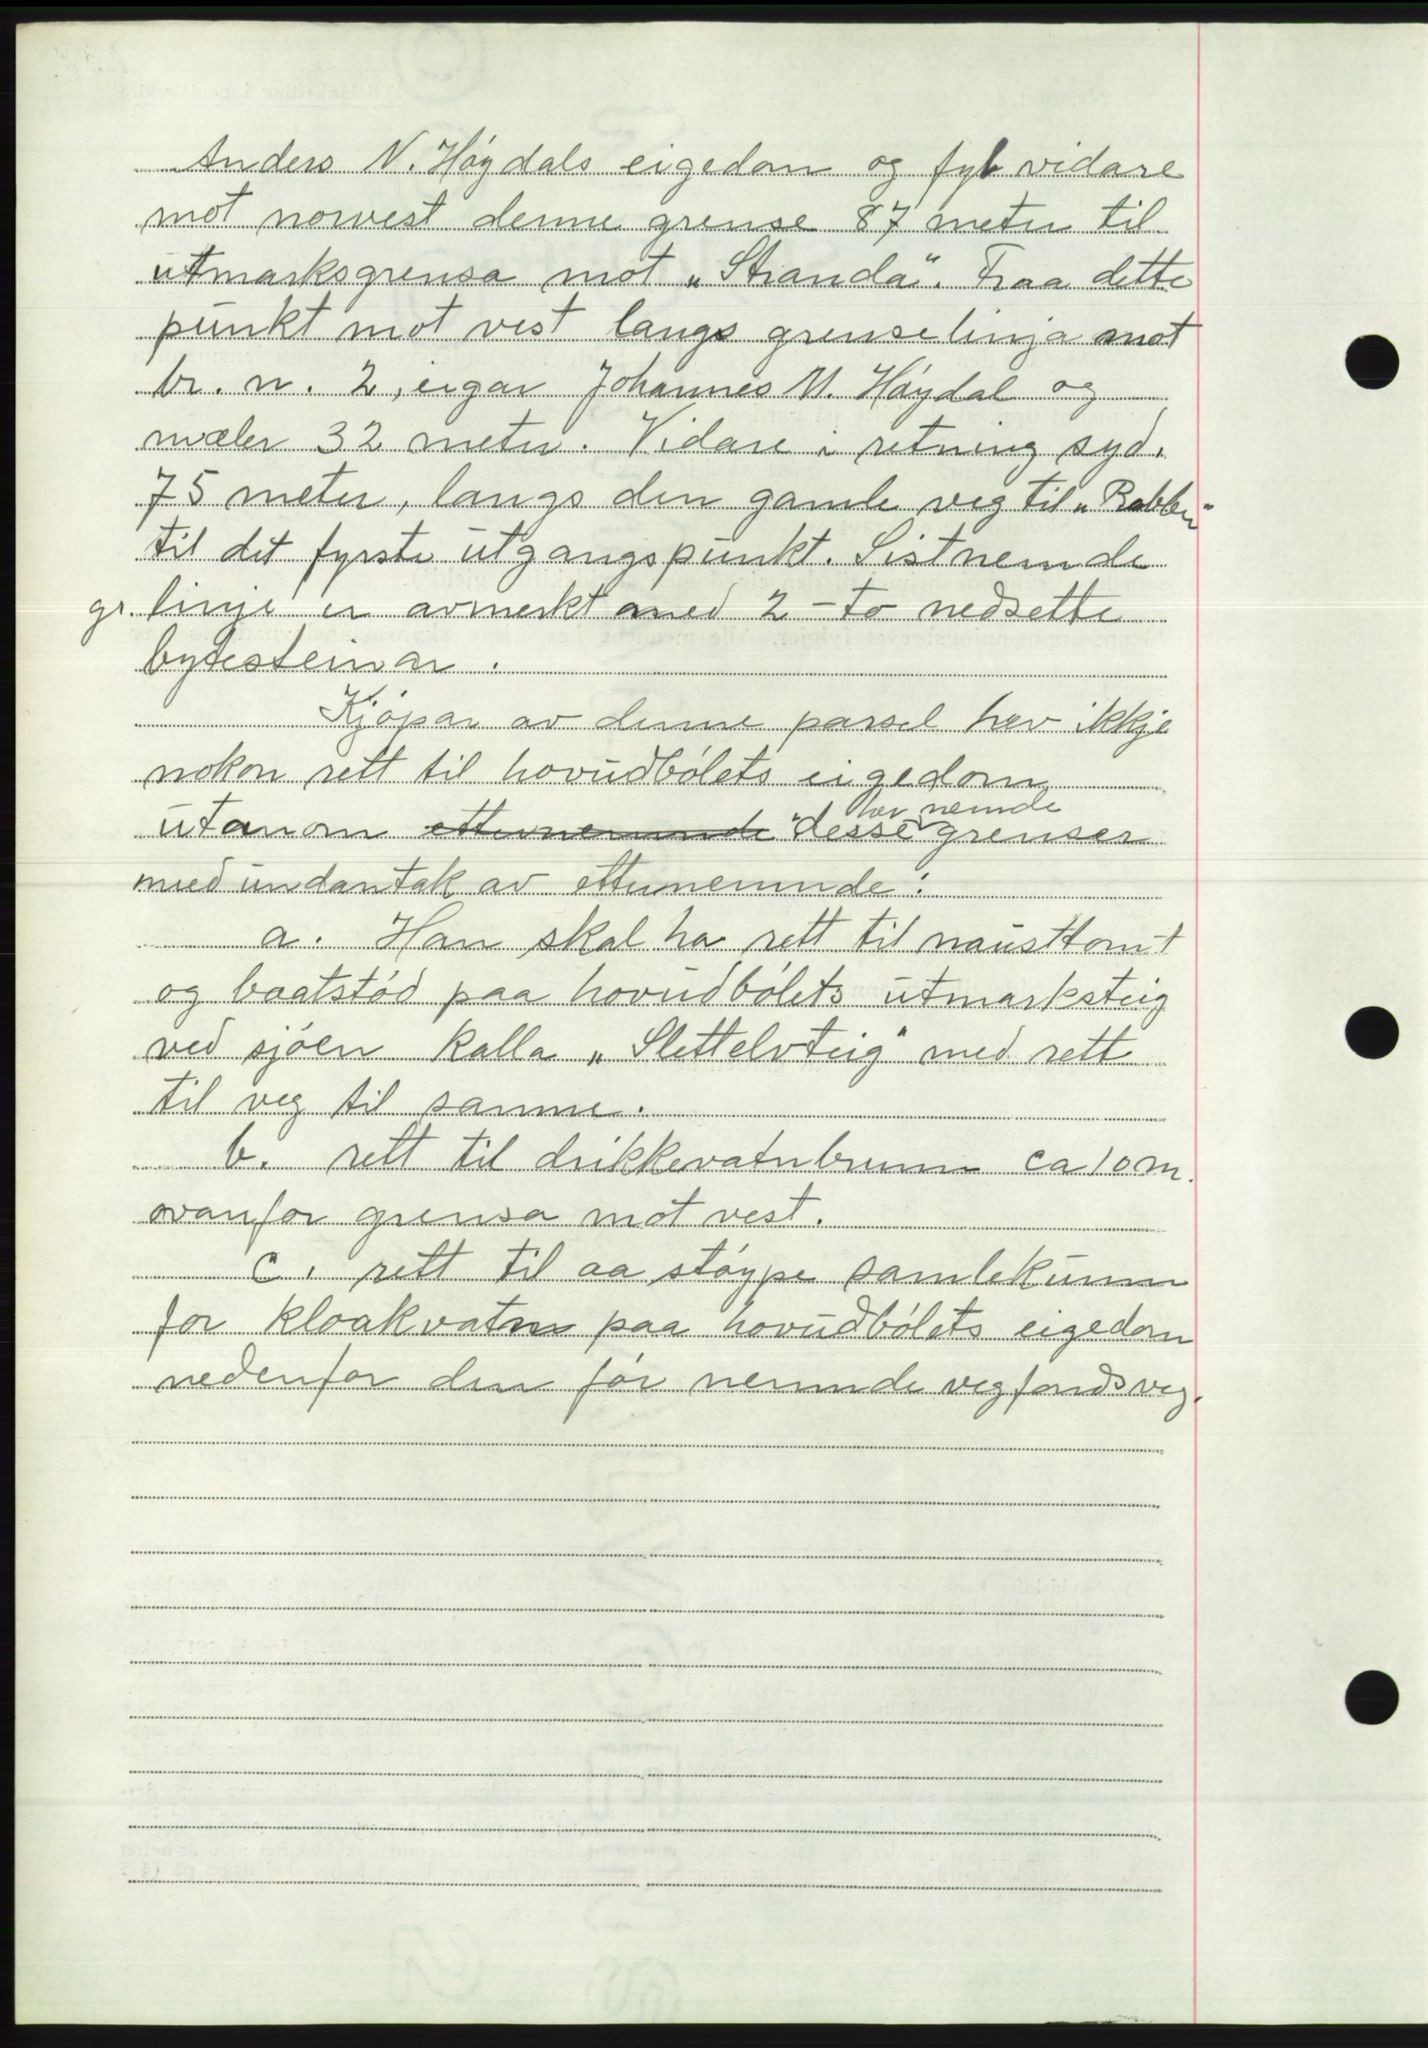 Anders N. Høydals eigedom og fyl vidare
mot norvest denne grense 87 meter til
utmarksgrensa mot „Stranda". Fraa dette
punkt mot vest langs grenselinja mot
br. n. 2, eigar Johannes M. Høydal og
mæler 32 meter. Vidare i retning syd.
75 meter, langs den gamle veg til „Rabben"
til det fyrste utgangspunkt. Sistnemde
gr. linje er avmerkt med 2 - to nedsette
bytesteinar.
Kjøpar av denne parsel hev ikkje
nokon rett til hovudbølets eigedom
utanom etternemnde desse her nemde grenser
med undantak av etternemnde:
a. Han skal ha rett til nausttomt
og baatstød paa hovudbølets utmarksteig
ved sjøen kalla „Slettelvteig" med rett
til veg til samme.
b. rett til drikkevatnbrunn ca 10 m.
ovanfor grensa mot vest.
c. rett til aa støype samlekumm
for kloakvatn paa hovudbølets eigedom
nedenfor den før nemnde vegfondsveg.